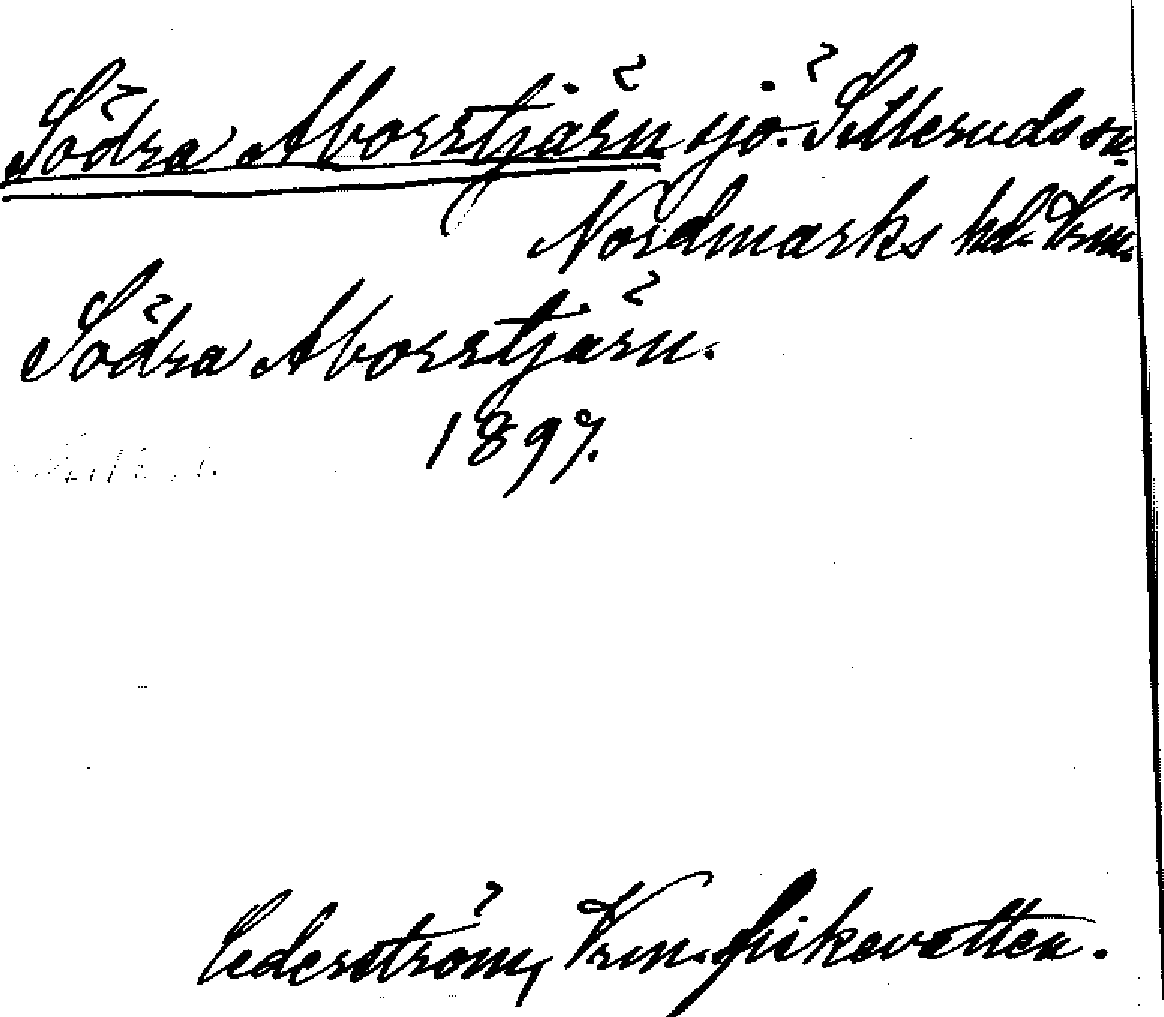 Södra Aborrtjärn sjö. Silleruds sn
Nordmarks hd. Vrm.
Södra Aborrtjärn.
1897.
Cederström, Vrm. fiskevatten.